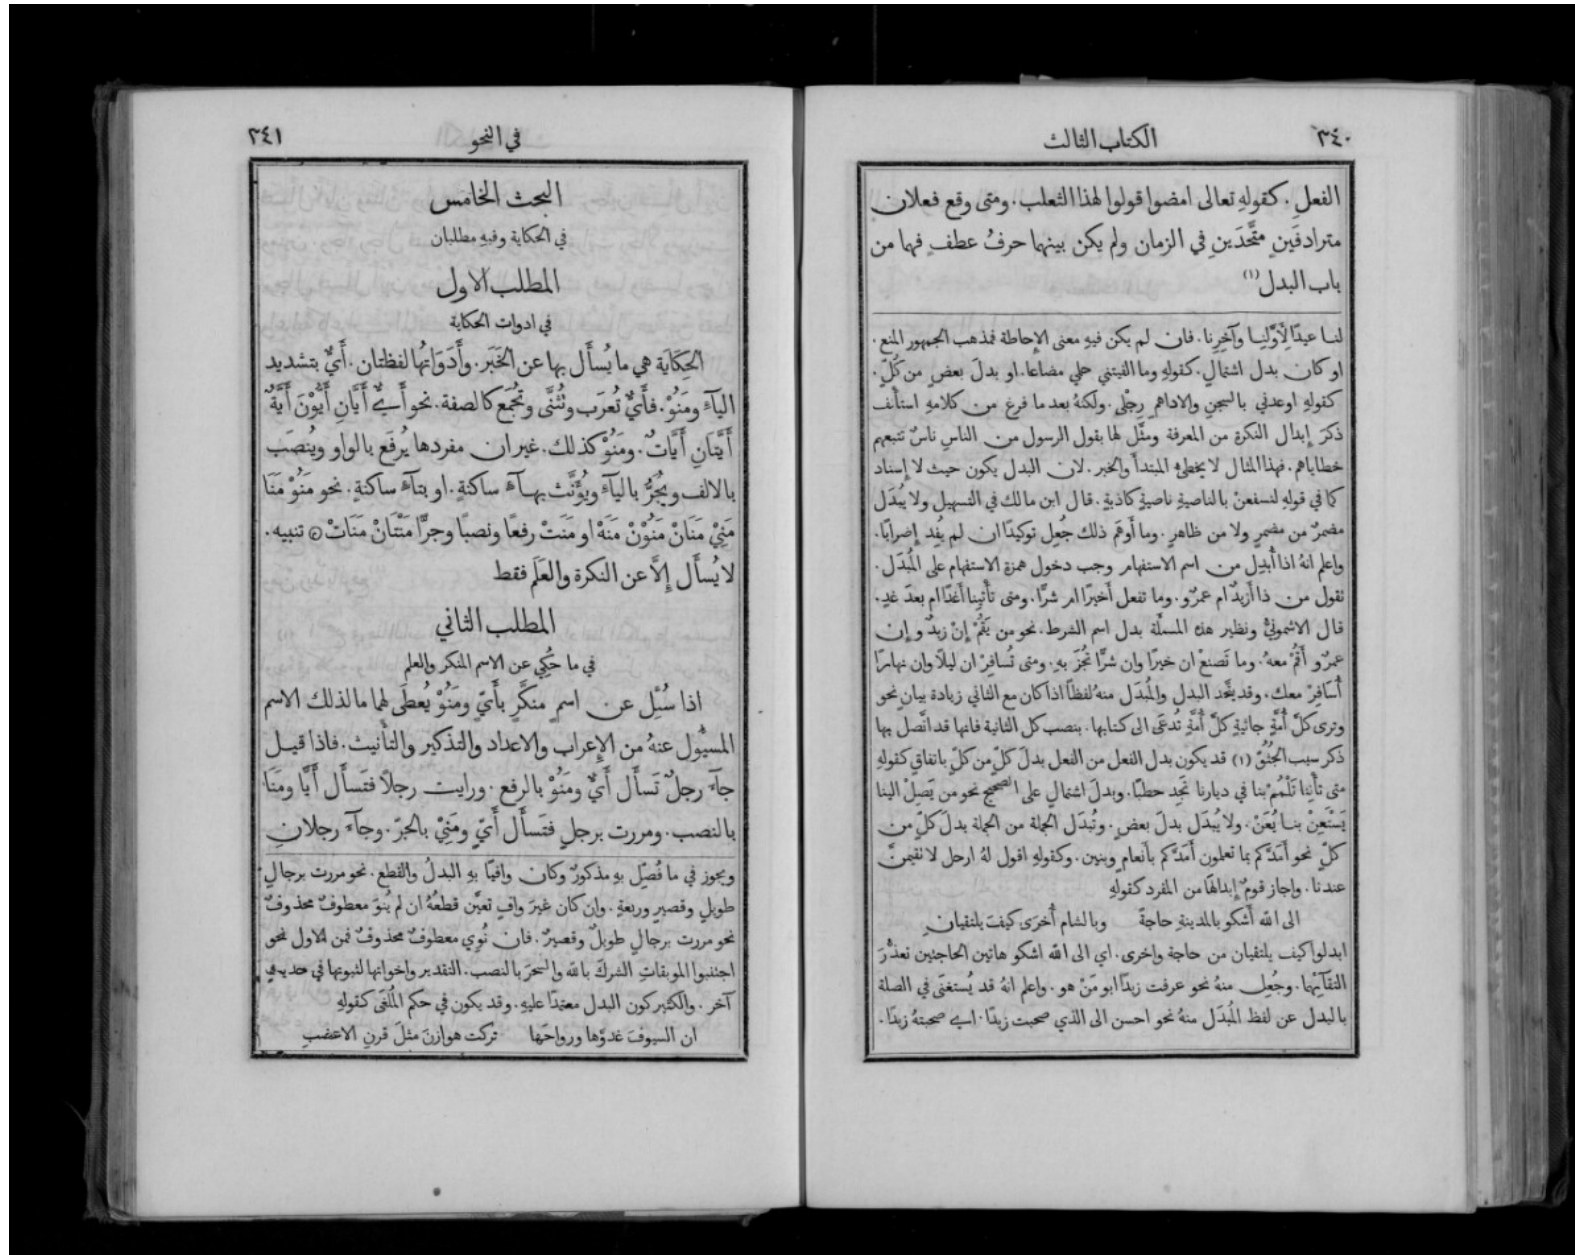 ٣٤٠
الكتاب الثالث
الفعلِ. كقولهِ تعالى امضوا قولوا لهذا الثعلب. ومتى وقع فعلان
مترادفَينِ متَّحدَينِ في الزمان ولم يكن بينهما حرفُ عطفٍ فهما من
باب البدل (١)
لنا عيدًا لِأوَّلنِا وآخِرِنا. فان لم يكن فيهِ معنى الإحاطة فمذهب الجمهور المنع.
او كان بدل اشتمالٍ. كقولهِ وما الفيتني حلمي مضاعا. او بدلَ بعضٍ من كُلٍّ.
كقولهِ اوعدني بالسجنِ والاداهمِ رِجْلي. ولكنهُ بعد ما فرغ من كلامهِ استأنف
ذكرَ إبدال النكرة من المعرفة ومثَّل لها بقول الرسول من الناسِ ناسٌ تتبعهم
خطاياهم. فهذا المثال لا يخطئُ المبتدأَ والخبر. لان البدل يكون حيث لا إسناد
كما في قولهِ لنسفعنْ بالناصيةِ ناصيةٍ كاذبةٍ. قال ابن مالك في التسهيل ولا يُبدَل
مضمرٌ من مضمرٍ ولا من ظاهرٍ. وما أَوهَمَ ذلك جُعِل توكيدًا ان لم يُفِد إضرابًا.
واعلم انهُ اذا أُبدِل من اسم الاستفهام وجب دخول همزة الاستفهام على المُبدَل.
تقول من ذا أَزيدٌ ام عمرٌو. وما تفعل أَخيرًا ام شرًّا. ومتى تأتينا أَغدًا ام بعدَ غدٍ.
قال الاشمونيُّ ونظير هذه المسئلة بدل اسم الشرط. نحو من يَقُمْ إِنْ زيدٌ وإِن
عمرٌو أَقُمْ معهُ. وما تَصنعْ ان خيرًا وان شرًّا تُجزَ بهِ. ومتى تُسافِرْ ان ليلًا وان نهارًا
أُسَافِرْ معك. وقد يتَّحد البدل والمُبدَل منهُ لفظًا اذا كان مع الثاني زيادة بيان نحو
وترى كلَّ أُمَّةٍ جاثيةٍ كلَّ أُمَّةٍ تُدعَى الى كتابها. بنصب كل الثانية فانها قد اتَّصل بها
ذكر سبب الجُثُوِّ (١) قد يكون بدل الفعل من الفعل بدلَ كلٍّ من كلٍّ باتفاقٍ كقولهِ
متى تأتِنا تُلْمِمْ بنا في ديارنا تَجِد حطبًا. وبدلَ اشتمالٍ على الصحيح نحو من يَصِلْ الينا
يَسْتَعِنْ بنا يُعَنْ. ولا يُبدَل بدلَ بعضٍ. وتُبدَل الجملة من الجملة بدلَ كلٍّ من
كلٍّ نحو أَمَدَّكم بما تعلمون أَمَدَّكم بأَنعامٍ وبنين. وكقولهِ اقول لهُ ارحل لا تقيمنَّ
عندنا. واجاز قومٌ إِبدالهَا من المفرد كقولهِ
الى الله أَشكو بالمدينةِ حاجةً وبالشام أُخرَى كيفَ يلتقيانِ
ابدلوا كيف يلتقيان من حاجة واخرى. اي الى الله اشكو هاتين الحاجتين تعذُّرَ
التقآئِهما. وجُعِل منهُ نحو عرفت زيدًا ابو مَنْ هو. واعلم انهُ قد يُستغنَى في الصلة
بالبدل عن لفظ المُبدَل منهُ نحو احسن الى الذي صحبت زيدًا. اي صحبتهُ زيدًا.
٣٤١
في النحو
البحث الخامس
في الحكاية وفيهِ مطلبان
المطلب الاول
في ادوات الحكاية
الحِكَايَة هي ما يُسأَل بها عن الخَبَر. وأَدَوَاتُها لفظتان. أَيٌّ بتشديد
اليآءِ ومَنُوْ. فأَيٌّ تُعرَب وتُثنَّى وتُجمَع كالصفة. نحو أَيٌّ أَيَّانِ أَيُّوْنَ أَيَّةٌ
أَيَّتَانِ أَيَّاتٌ. ومَنُوْ كذلك. غيران مفردها يُرفَع بالواو ويُنصَب
بالالف ويُجَرُّ باليآءِ ويُؤَنَّث بهآءٍ ساكنةٍ. او بتآءٍ ساكنةٍ. نحو مَنُوْ مَنَا
مَنِيْ مَنَانْ مَنُوْنْ مَنَهْ او مَنَتْ رفعًا ونصبًا وجرًّا مَنْتَانْ مَنَاتْ ۞ تنبيه.
لا يُسأَل إِلَّا عن النكرة والعَلَم فقط
المطلب الثاني
في ما حُكِي عن الاسم المنكر والعلم
اذا سُئِل عن اسمٍ منكَّرٍ بأَيٍّ ومَنُوْ يُعطَى لهما ما لذلك الاسم
المسئُول عنهُ من الإعراب والاعداد والتذكير والتأنيث. فاذا قيل
جآءَ رجلٌ تَسأَل أَيٌّ ومَنُوْ بالرفع. ورايت رجلًا فتَسأَل أَيًّا ومَنَا
بالنصب. ومررت برجلٍ فتَسأَل أَيٍّ ومَنِيْ بالجرّ. وجآءَ رجلانِ
ويجوز في ما فُصِّل بهِ مذكورٌ وكان وافيًا بهِ البدلُ والقطع. نحو مررت برجالٍ
طويلٍ وقصيرٍ وربعةٍ. وان كان غيرَ وافٍ تعيَّن قطعُهُ ان لم يُنوَ معطوفٌ محذوفٌ
نحو مررت برجالٍ طويلٌ وقصيرٌ. فان نُوِي معطوفٌ محذوفٌ فمن الاول نحو
اجتنبوا الموبقاتِ الشركَ بالله والسحرَ بالنصب. التقدير واخواتها لثبوتها في حديثٍ
آخر. والكثير كون البدل معتمدًا عليهِ. وقد يكون في حكم المُلغَى كقولهِ
ان السيوفَ غدوَّها ورواحَها تركت هوازنَ مثلَ قرنِ الاعضبِ